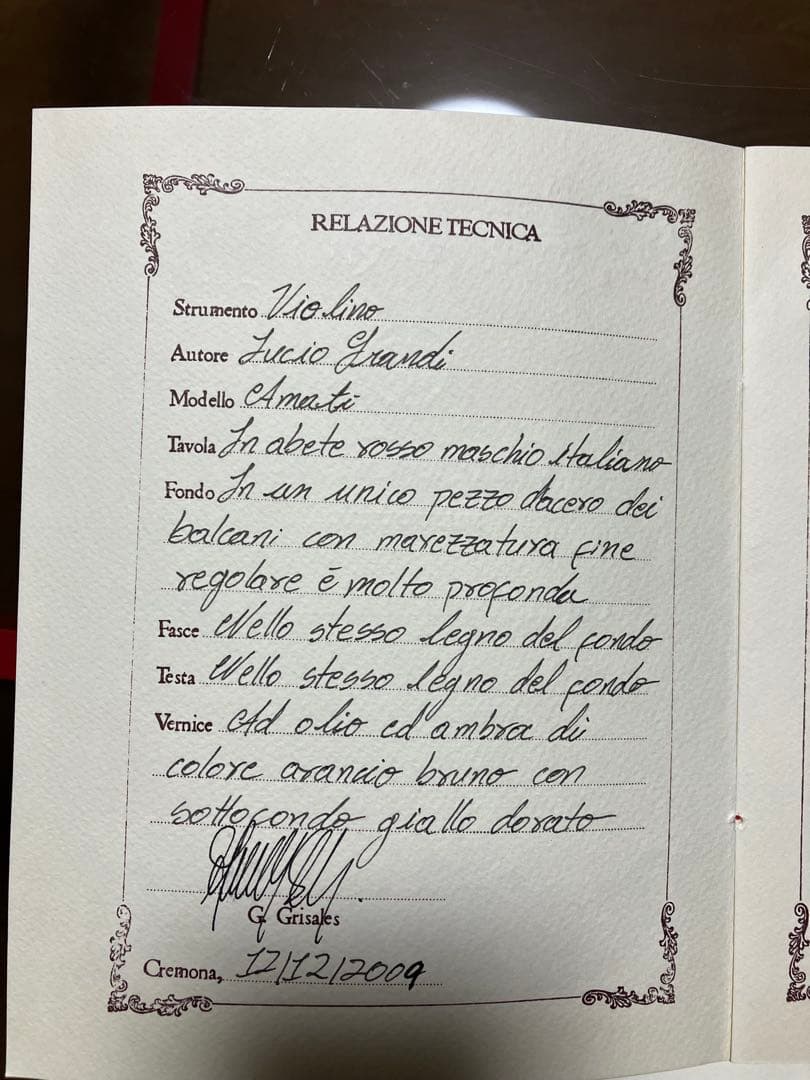 RELAZIONE TECNICA
Strumento Violino
Autore Lucio Grandi
Modello Amati
Tavola In abete rosso maschio italiano
Fondo In un unico pezzo d'acero dei
balcani con marezzatura fine
regolare é molto profonda
Fasce Nello stesso legno del fondo
Testa Nello stesso legno del fondo
Vernice Ad olio ed ambra di
colore arancio bruno con
sottofondo giallo dorato
G. Grisales
Cremona, 12/12/2009